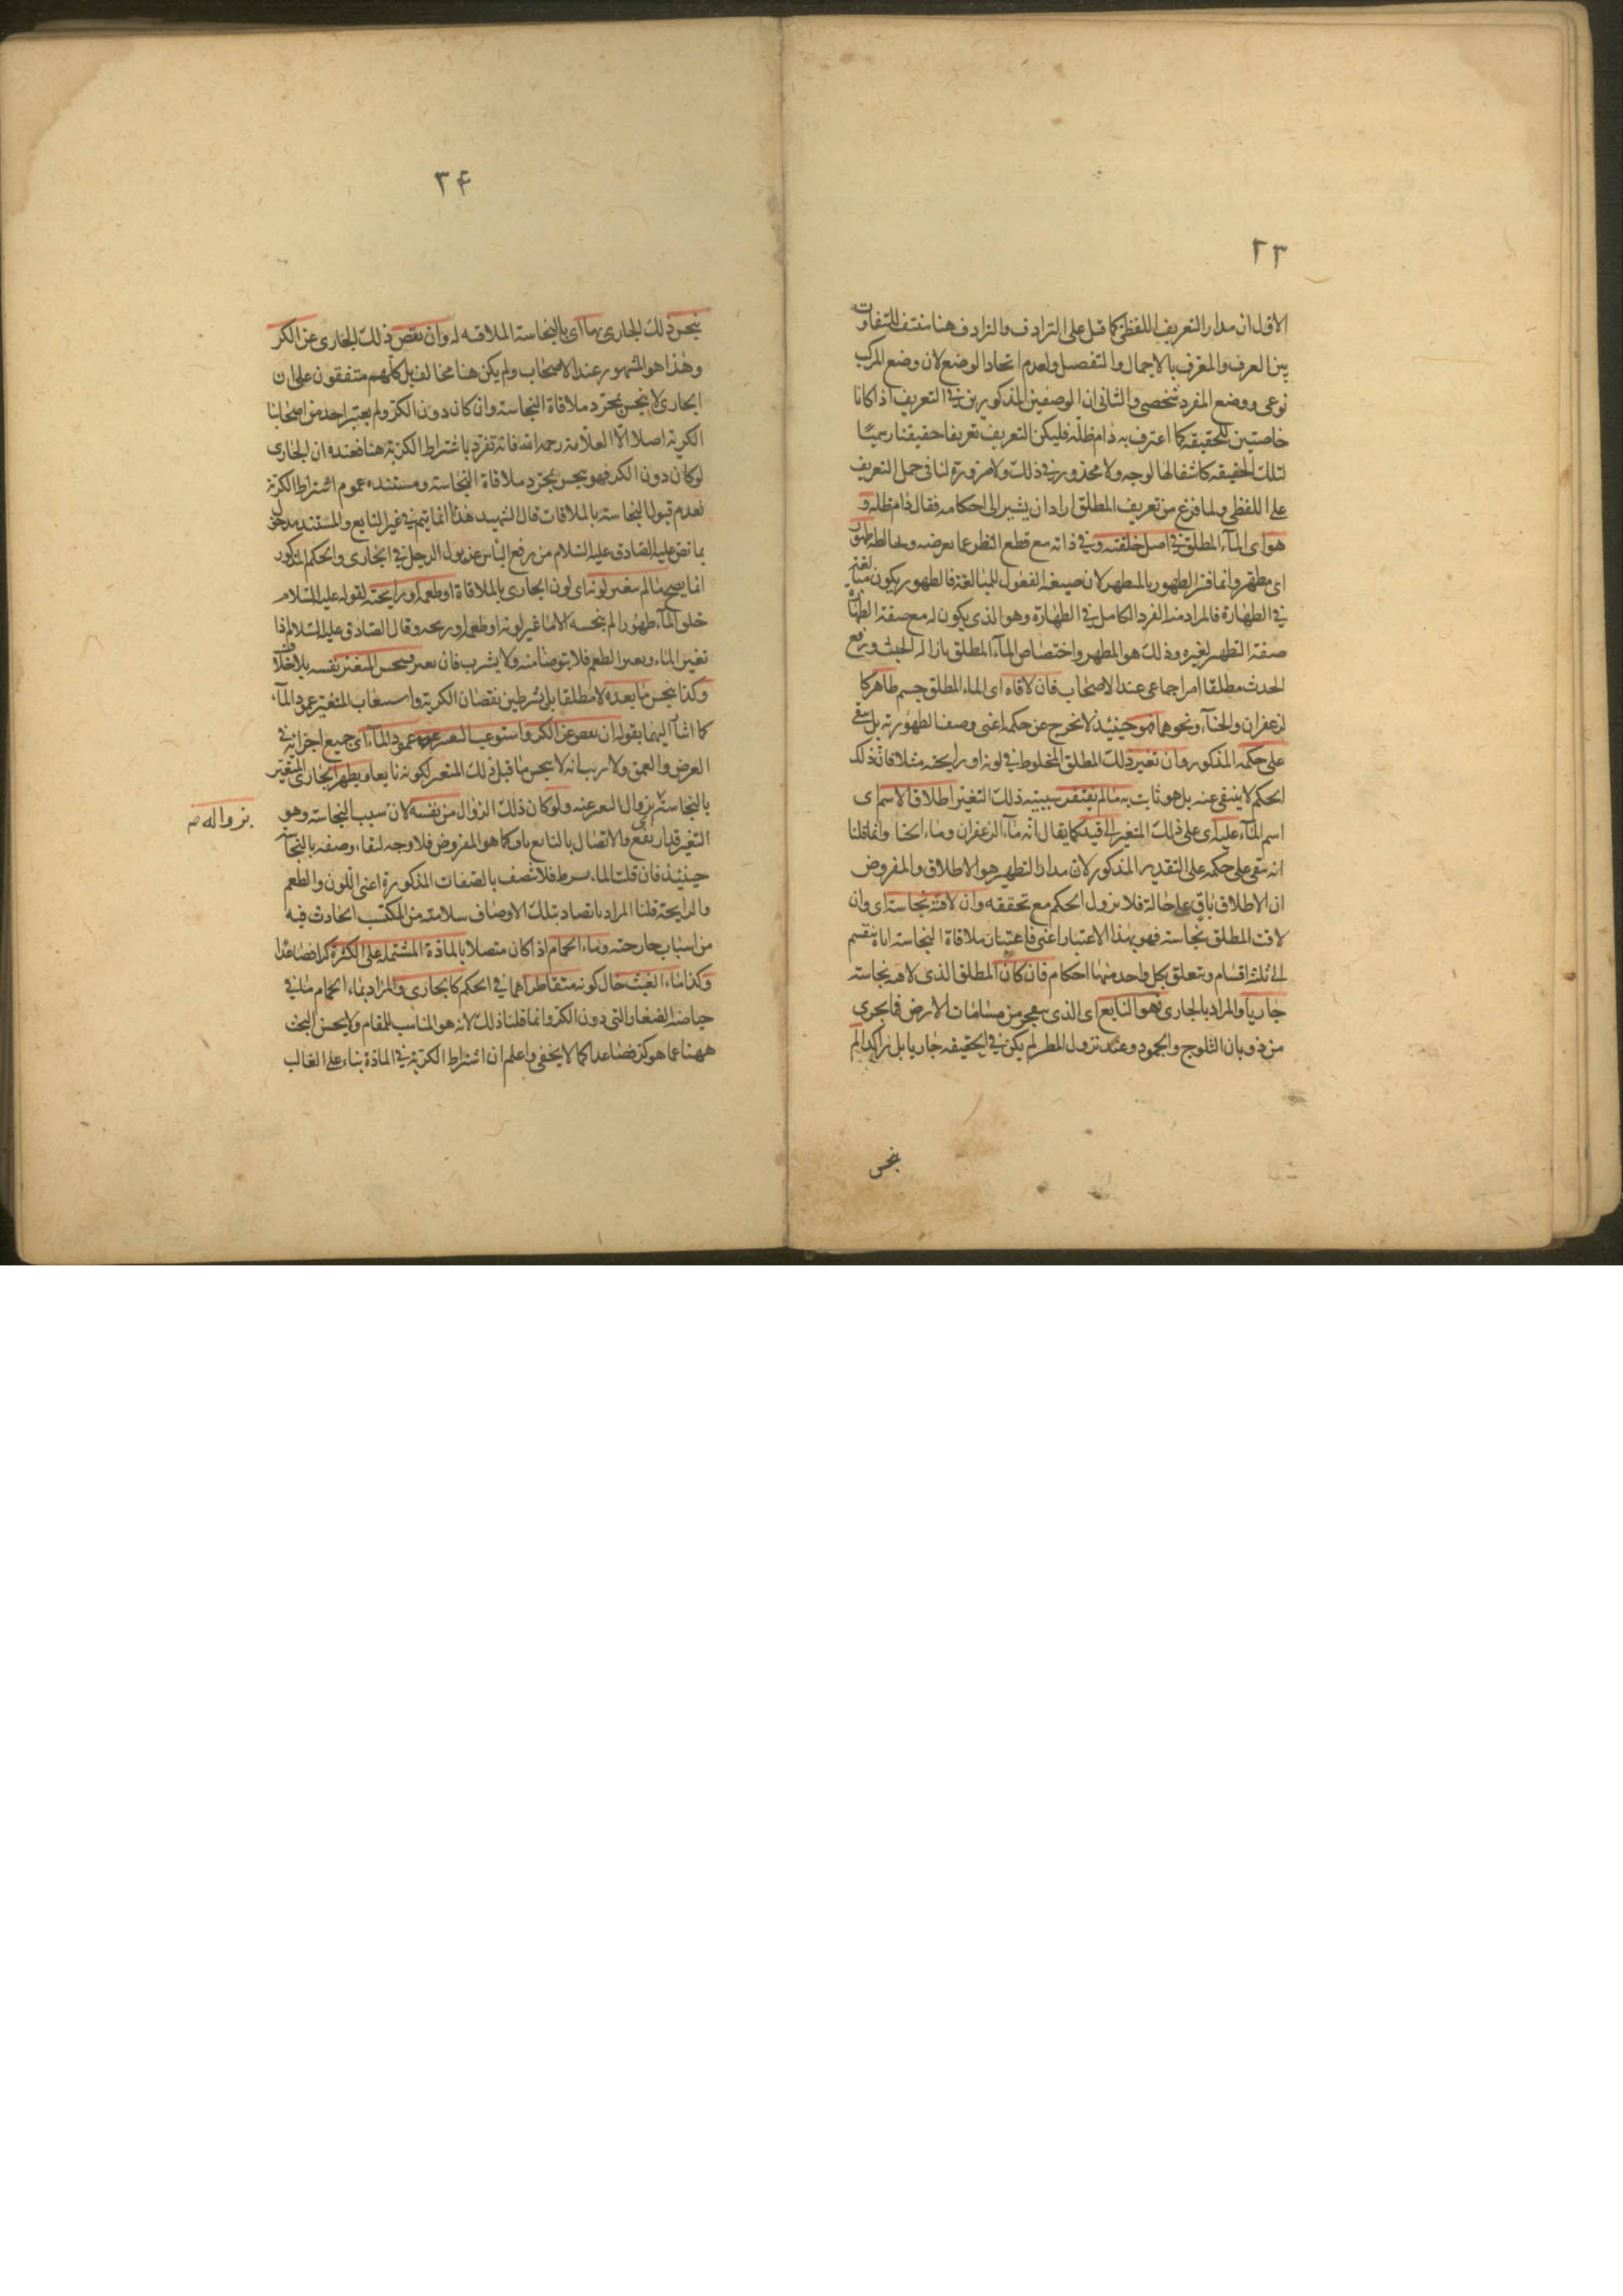 ٢٣
الاول ان مدار التعريف اللفظي كما قيل على الترادف والترادف هنا منتف للتفاوت
بين المعرف والمعرف بالاجمال والتفصيل ولعدم اتحاد الوضع لان وضع المركب
نوعي ووضع المفرد شخصي والثاني ان الوصفين المذكورين في التعريف اذا كانا
خاصتين للحقيقة كما اعترف به دام ظله فليكن التعريف تعريفا حقيقيا رسميا
لتلك الحقيقة كاشفا لها لوجه ولا محذور في ذلك ولا ضرورة لنا في حمل التعريف
على اللفظي ولما فرغ من تعريف المطلق اراد ان يشير الى احكامه فقال دام ظله و
هو اى المآء المطلق في اصل خلقته وفي ذاته مع قطع النظر عما يعرضه ويخالطه طهور
اى مطهر وانما فسر الطهور بالمطهر لان صيغة الفعول للمبالغة فالطهور يكون مبالغة
في الطهارة فالمراد منه الفرد الكامل في الطهارة وهو الذي يكون له مع صفة الطهارة
صفة التطهير لغيره وذلك هو المطهر واختصاص المآء المطلق بازالة الخبث ورفع
الحدث مطلقا امر اجماعي عند الاصحاب فان لاقاه اى الماء المطلق جسم طاهر كا
لزعفران والحنآء ونحوهما فهو حينئذ لا نخرج عن حكمه اعنى وصف الطهورية بل يبقى
على حكمه المذكور وان تغير ذلك المطلق المخلوط في لونه او رايحته مثلا فان ذلك
الحكم لا ينتفى عنه بل هو ثابت به مالم يفتقر بسببيه ذلك التغير اطلاق الاسم اى
اسم المآء عليه اى على ذلك المتغير الى قيد كما يقال انه مآء الزعفران وماء الحنا وانما قلنا
انه يبقى على حكمه على التقدير المذكور لان مدار التطهير هو الاطلاق والمفروض
ان الاطلاق باق على حاله فلا يزول الحكم مع تحققه وان لاقته نجاسة اى وان
لاقت المطلق نجاسة فهو بهذا الاعتبار اعنى باعتبار ملاقاة النجاسة اياه ينقسم
الى ثلثة اقسام ويتعلق بكل واحد منها احكام فان كان المطلق الذى لاقته نجاسة
جاريا والمراد بالجارى هو النابع اى الذى ينفجر من مسامات الارض فما يجرى
من ذوبان الثلوج والجمود وعند نزول المطر لم يكن في الحقيقة جاريا بل راكدا لم
ينجس
٢۴
ينجس ذلك الجارى بها اى بالنجاسة الملاقية له وان نقص ذلك الجارى عن الكر
وهذا هو المشهور عند الاصحاب ولم يكن هنا مخالف بل كلهم متفقون على ان
الجارى لا ينجس بمجرد ملاقاة النجاسة وان كان دون الكر ولم يعتبر احد من اصحابنا
الكرية اصلا الا العلامة رحمه الله فانه تفرد باشتراط الكرية هنا فعنده ان الجارى
لو كان دون الكر فهو ينجس بمجرد ملاقاة النجاسة ومستنده عموم اشتراط الكرية
لعدم قبول النجاسة بالملاقات قال الشهيد هذا انما يتم في غير النابع والمستند مدخول
بما نص عليه الصادق عليه السلام من رفع الباس عن بول الرجل في الجارى والحكم المذكور
انما يصح مالم يتغير لونه اى لون الجارى بالملاقاة او طعمه او رايحته لقوله عليه السلام
خلق المآء طهورا لم ينجسه الا ما غير لونه او طعمه او ريحه وقال الصادق عليه السلام اذا
تغير الماء وتغير الطعم فلا يتوضأ منه ولا يشرب فان تغير وينجس المتغير نفسه بلا خلاف
وكذا ينجس ما بعده لا مطلقا بل بشرطين نقصان الكرية واستيعاب المتغير عمود المآء
كما اشار اليهما بقوله ان نقص عن الكر واستوعب التغير عمود المآء اى جميع اجزائه في
العرض والعمق ولا ريب انه لا ينجس ما قبل ذلك المتغير لكونه نابعا ويطهر الجارى المتغير
بالنجاسة بزوال التغير عنه ولو كان ذلك الزوال من نفسه لان سبب النجاسة وهو
بزواله
التغير قد ارتفع والاتصال بالنابع باق كما هو المفروض فلا وجه لبقاء وصفه بالنجاسة
حينئذ فان قلت الماء فلا تصف بالصفات المذكورة اعنى اللون والطعم
والرايحة قلنا المراد باتصافه بتلك الاوصاف سلامته من المكتسب الحادث فيه
من اسباب خارجة وماء الحمام اذا كان متصلا بالمادة المشتملة على الكثرة كرا فصاعدا
وكذا ماء الغيث حال كونه متقاطرا هما في الحكم كالجارى والمراد بماء الحمام ما في
حياضه الصغار التى دون الكر وانما قلنا ذلك لانه هو المناسب للمقام ولا يحسن البحث
ههنا عما هو كر فصاعدا كما لا يخفى واعلم ان اشتراط الكرية في المادة بناء على الغالب